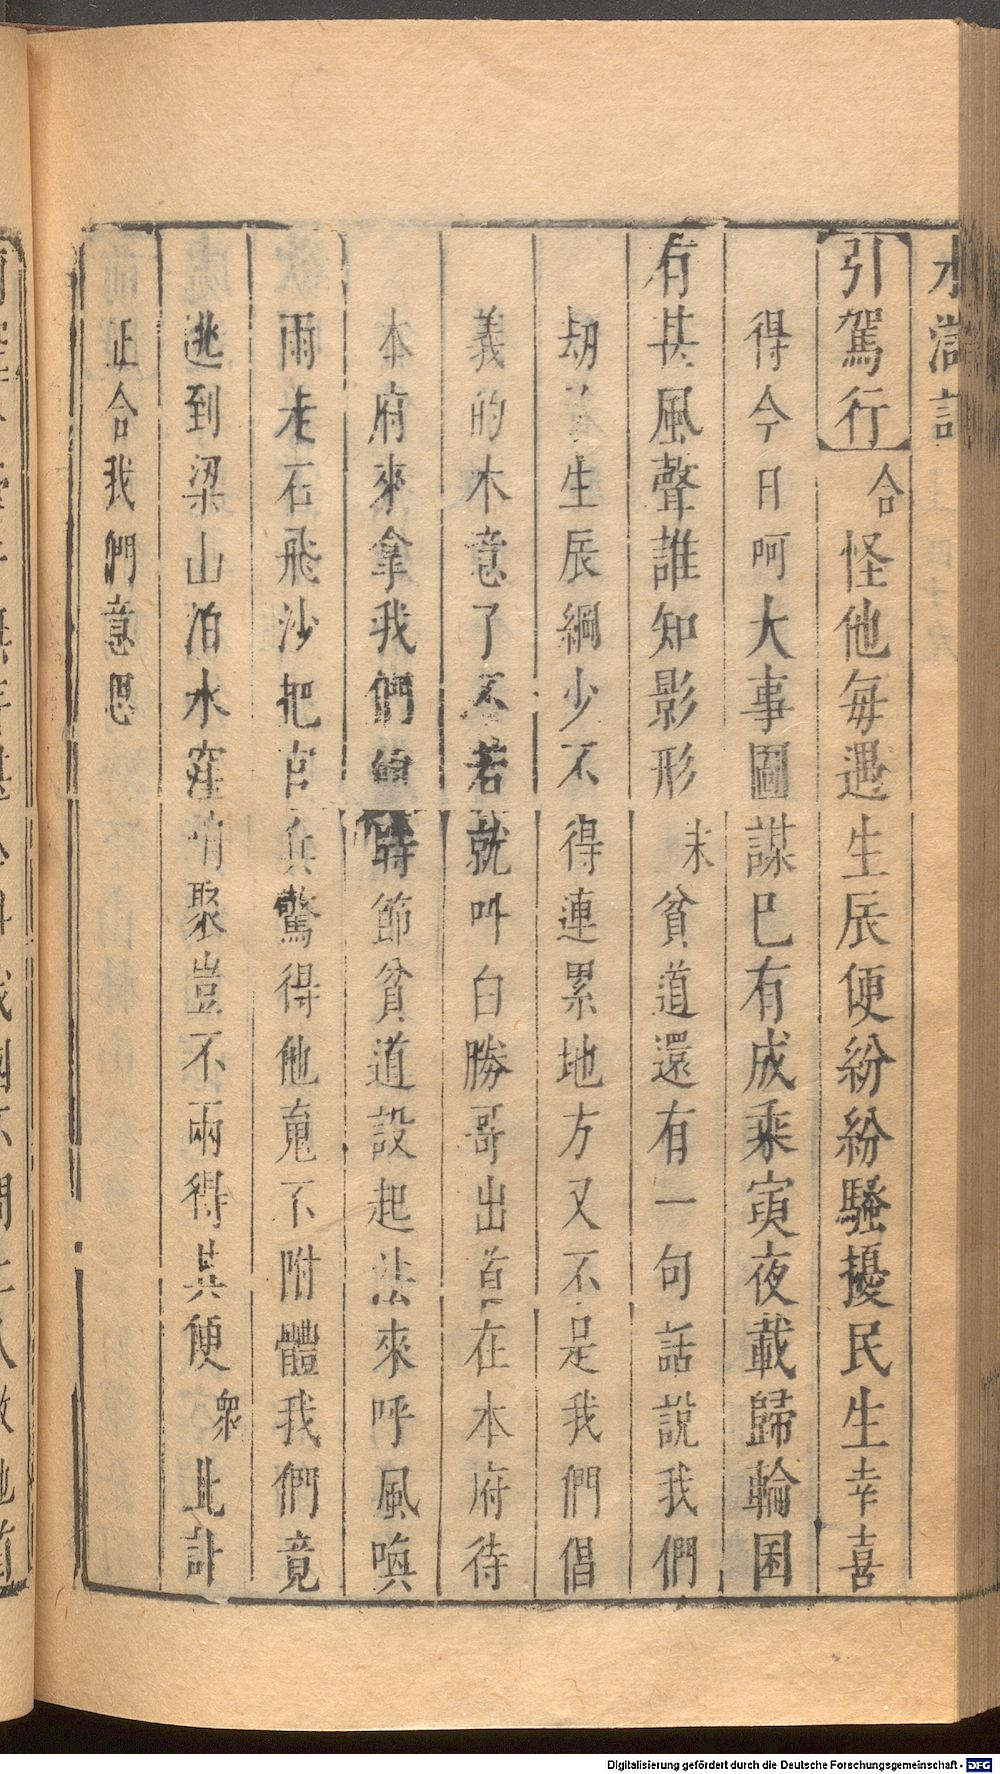 水滸記
引駕行 合 怪他每遇生辰便紛紛騷擾民生幸喜
得今日呵大事圖謀巳有成乘寅夜載歸輪囷
有甚風聲誰知影形 末 貧道還有一句話說我們
劫生辰綱少不得連累地方又不是我們倡
義的木意了不若就呌白勝哥出首在本府待
本府來拿我們的時節貧道設起法來呼風喚
雨走石飛沙把官兵驚得他䰟不附體我們竟
逃到梁山泊水窪哨聚豈不兩得其便 衆 此計
正合我們意思
Digitalisierung gefördert durch die Deutsche Forschungsgemeinschaft - DFG